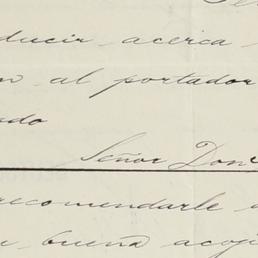 ducir acerca
al portador
Señor Don
recomendarle
buena acoj